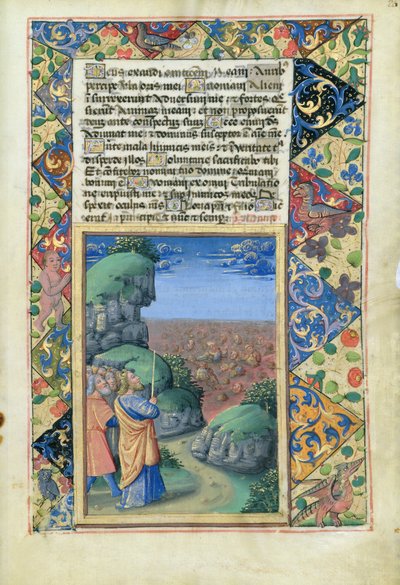 Deus exaudi orationem meam Aurib
percipe verba oris mei Quoniam Alieni
insurrexerunt Adversum me et fortes que
sierunt Animam meam et non proposuerunt
deum ante conspectum suum Ecce enim deus
Adiuvat me et dominus susceptor est Aime mee
Averte mala inimicis meis et in veritate tua
disperde illos Voluntarie sacrificabo tibi
Et confitebor nomini tuo domine Quoniam
bonum est Quoniam ex omni tribulatio
ne eripuisti me et super inimicos meos De
spexit oculus meus
erat in principio et nunc et semper